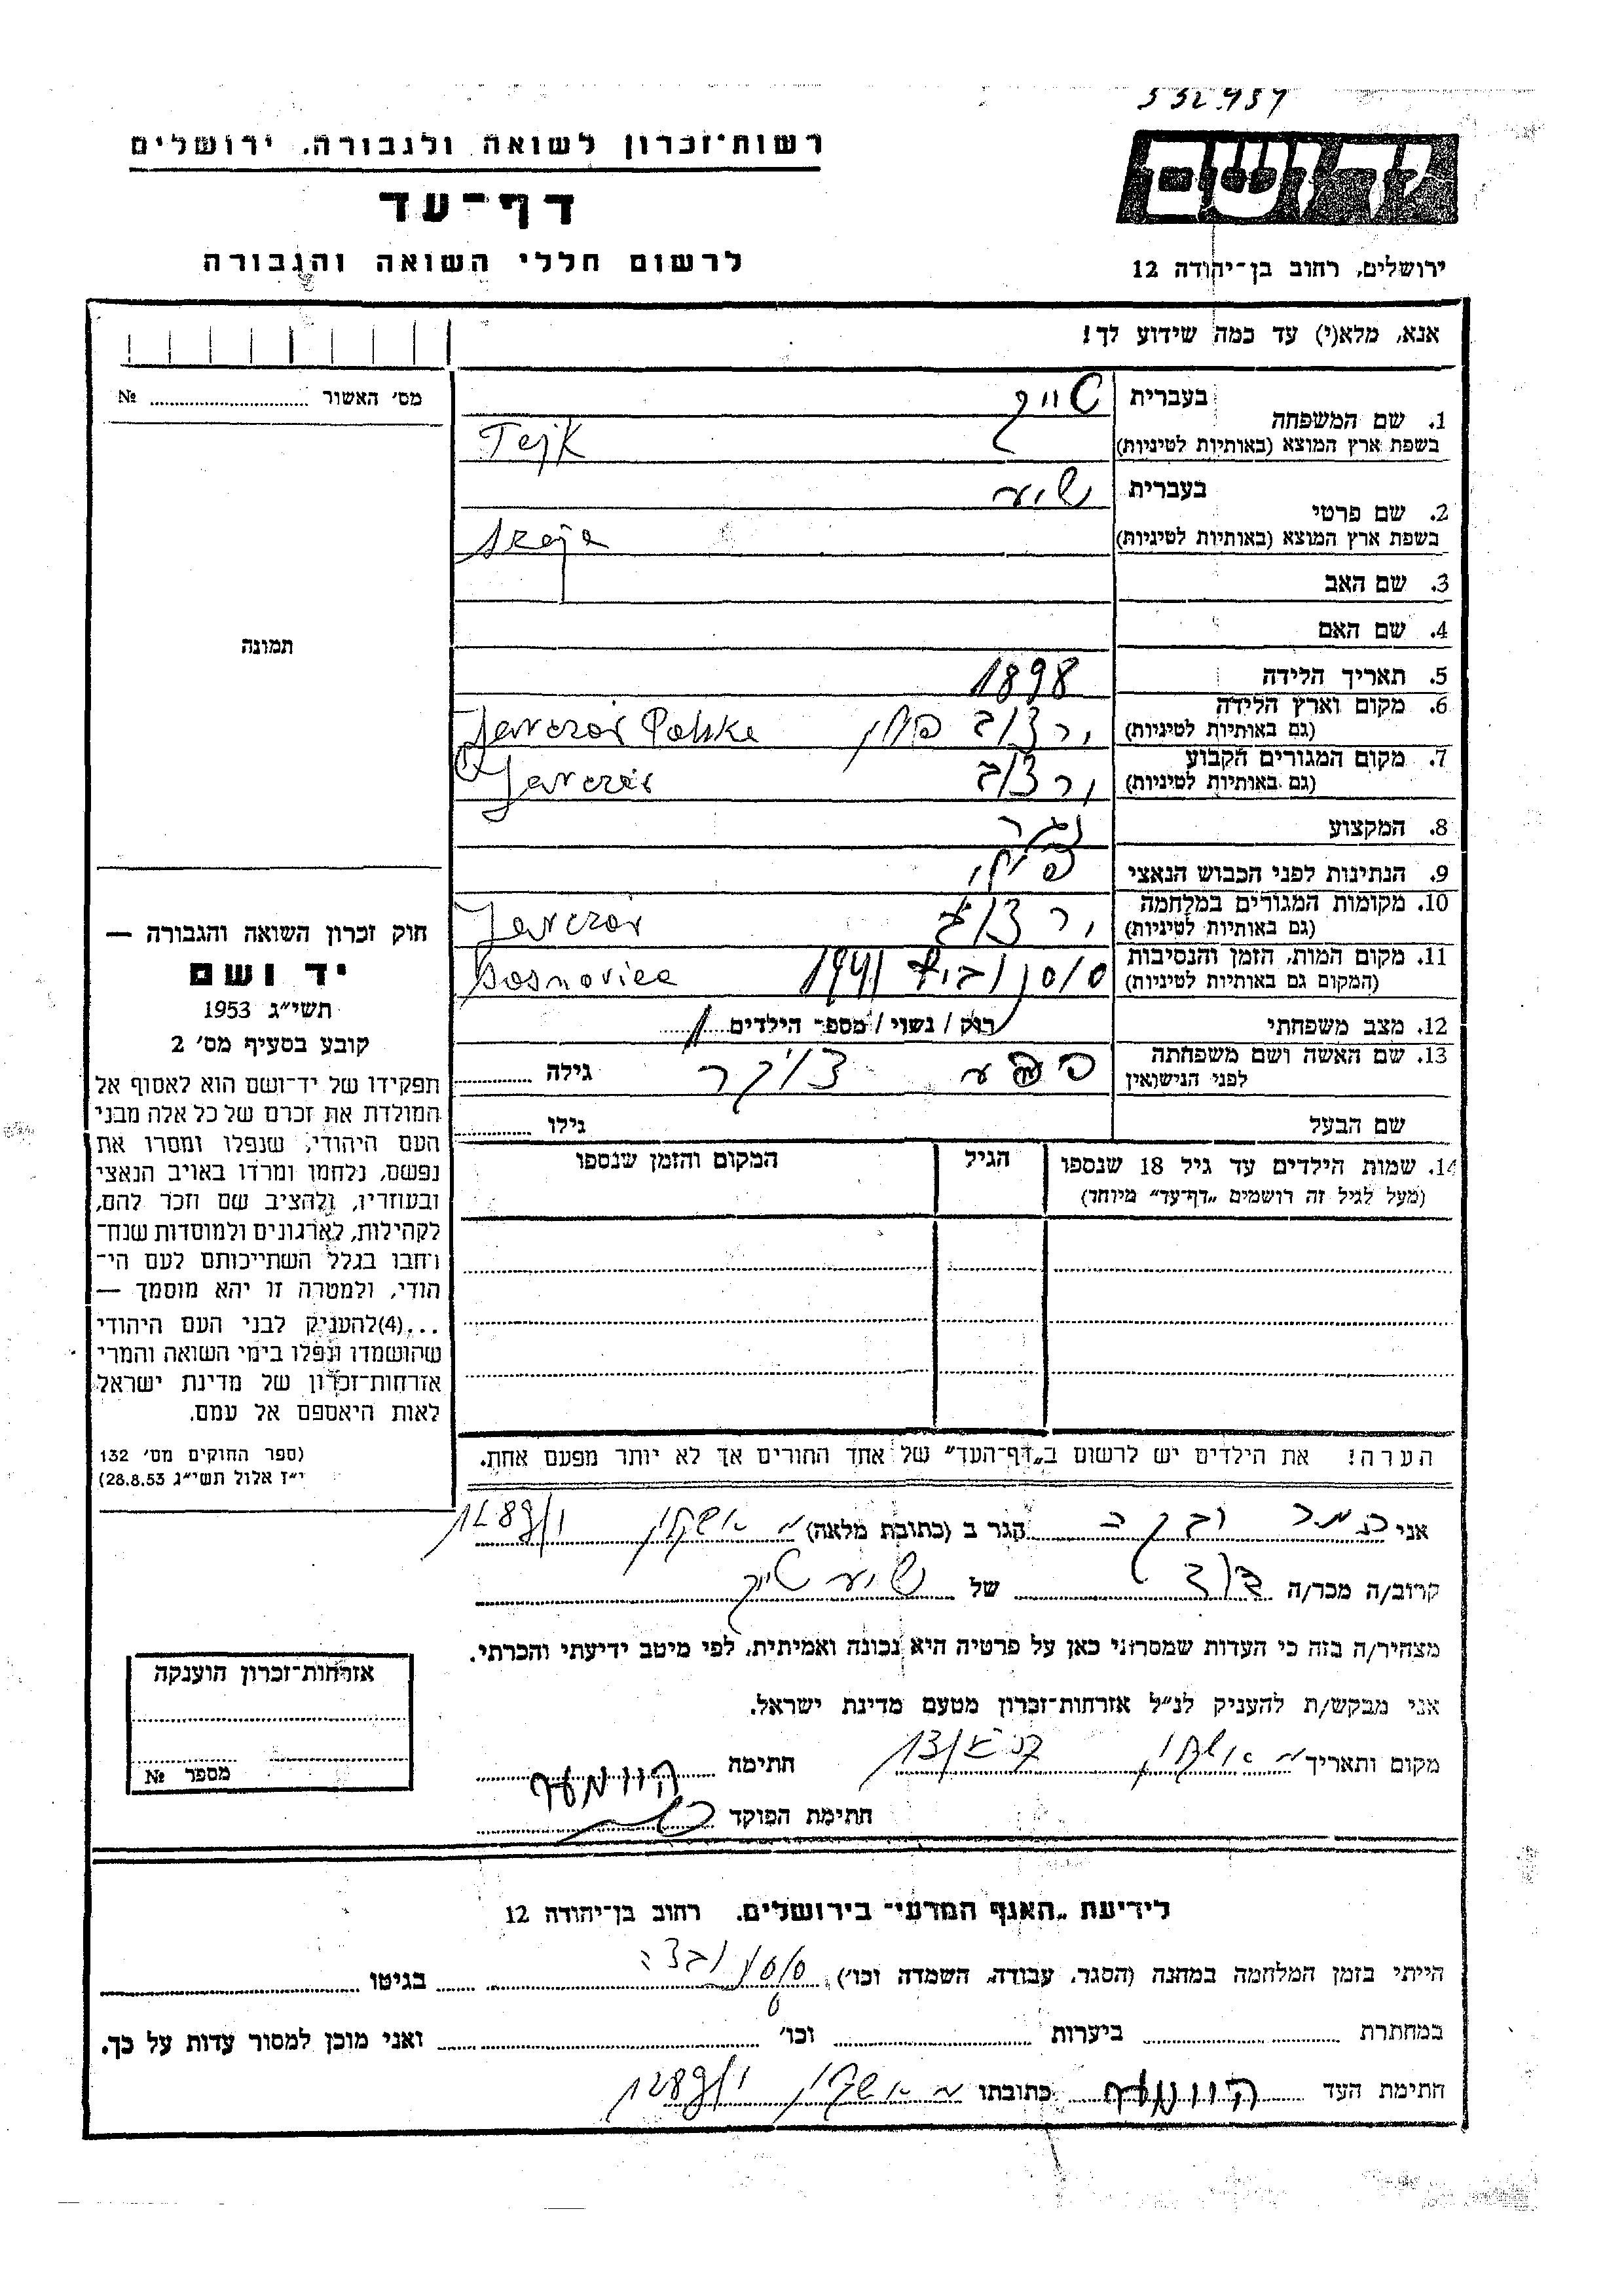 332959
יד ושם
רשות־זכרון לשואה ולגבורה. ירושלים
דף־עד
לרשום חללי השואה והגבורה
ירושלים, רחוב בן־יהודה 12
אנא, מלא(י) עד כמה שידוע לך!
מס׳ האשור № 
1. שם המשפחה בעברית טייק
בשפת ארץ המוצא (באותיות לטיניות) Tejk
2. שם פרטי בעברית שיע
בשפת ארץ המוצא (באותיות לטיניות) Szaja
3. שם האב
4. שם האם
תמונה
5. תאריך הלידה 1898
6. מקום וארץ הלידה (גם באותיות לטיניות) פולין Polske
7. מקום המגורים הקבוע (גם באותיות לטיניות)
8. המקצוע נגר
9. הנתינות לפני הכבוש הנאצי פולני
10. מקומות המגורים במלחמה (גם באותיות לטיניות)
11. מקום המות, הזמן והנסיבות (המקום גם באותיות לטיניות) 1941 Sosnovice
12. מצב משפחתי רוק / נשוי / מספר הילדים 1
13. שם האשה ושם משפחתה לפני הנישואין גילה
שם הבעל גילו
14. שמות הילדים עד גיל 18 שנספו (מעל לגיל זה רושמים „דף־עד״ מיוחד)
הגיל
המקום והזמן שנספו
חוק זכרון השואה והגבורה —
יד ושם
תשי״ג 1953
קובע בסעיף מס׳ 2
תפקידו של יד־ושם הוא לאסוף אל
המולדת את זכרם של כל אלה מבני
העם היהודי, שנפלו ומסרו את
נפשם, נלחמו ומרדו באויב הנאצי
ובעוזריו, ולהציב שם וזכר להם,
לקהילות, לארגונים ולמוסדות שנח־
רחבו בגלל השתייכותם לעם הי־
הודי, ולמטרה זו יהא מוסמך —
...(4)להעניק לבני העם היהודי
שהושמדו ונפלו בימי השואה והמרי
אזרחות־זכרון של מדינת ישראל
לאות היאספם אל עמם.
(ספר החוקים מס׳ 132
י״ז אלול תשי״ג 28.8.53)
הערה! את הילדים יש לרשום ב„דף־העד״ של אחד החורים אך לא יותר מפעם אחת.
אני הגר ב (כתובת מלאה) אשקלון
קרוב/ה מכר/ה דוד של שיע טייק
מצהיר/ה בזה כי העדות שמסרתי כאן על פרטיה היא נכונה ואמיתית, לפי מיטב ידיעתי והכרתי.
אני מבקש/ת להעניק לנ״ל אזרחות־זכרון מטעם מדינת ישראל.
מקום ותאריך אשקלון חתימה
חתימת הפוקד
אזרחות־זכרון הוענקה
מספר №
לידיעת „האגף המדעי״ בירושלים. רחוב בן־יהודה 12
הייתי בזמן המלחמה במחנה (הסגר, עבודה, השמדה וכו׳) בגיטו
במחתרת ביערות וכו׳ ואני מוכן למסור עדות על כך.
חתימת העד כתובתו אשקלון